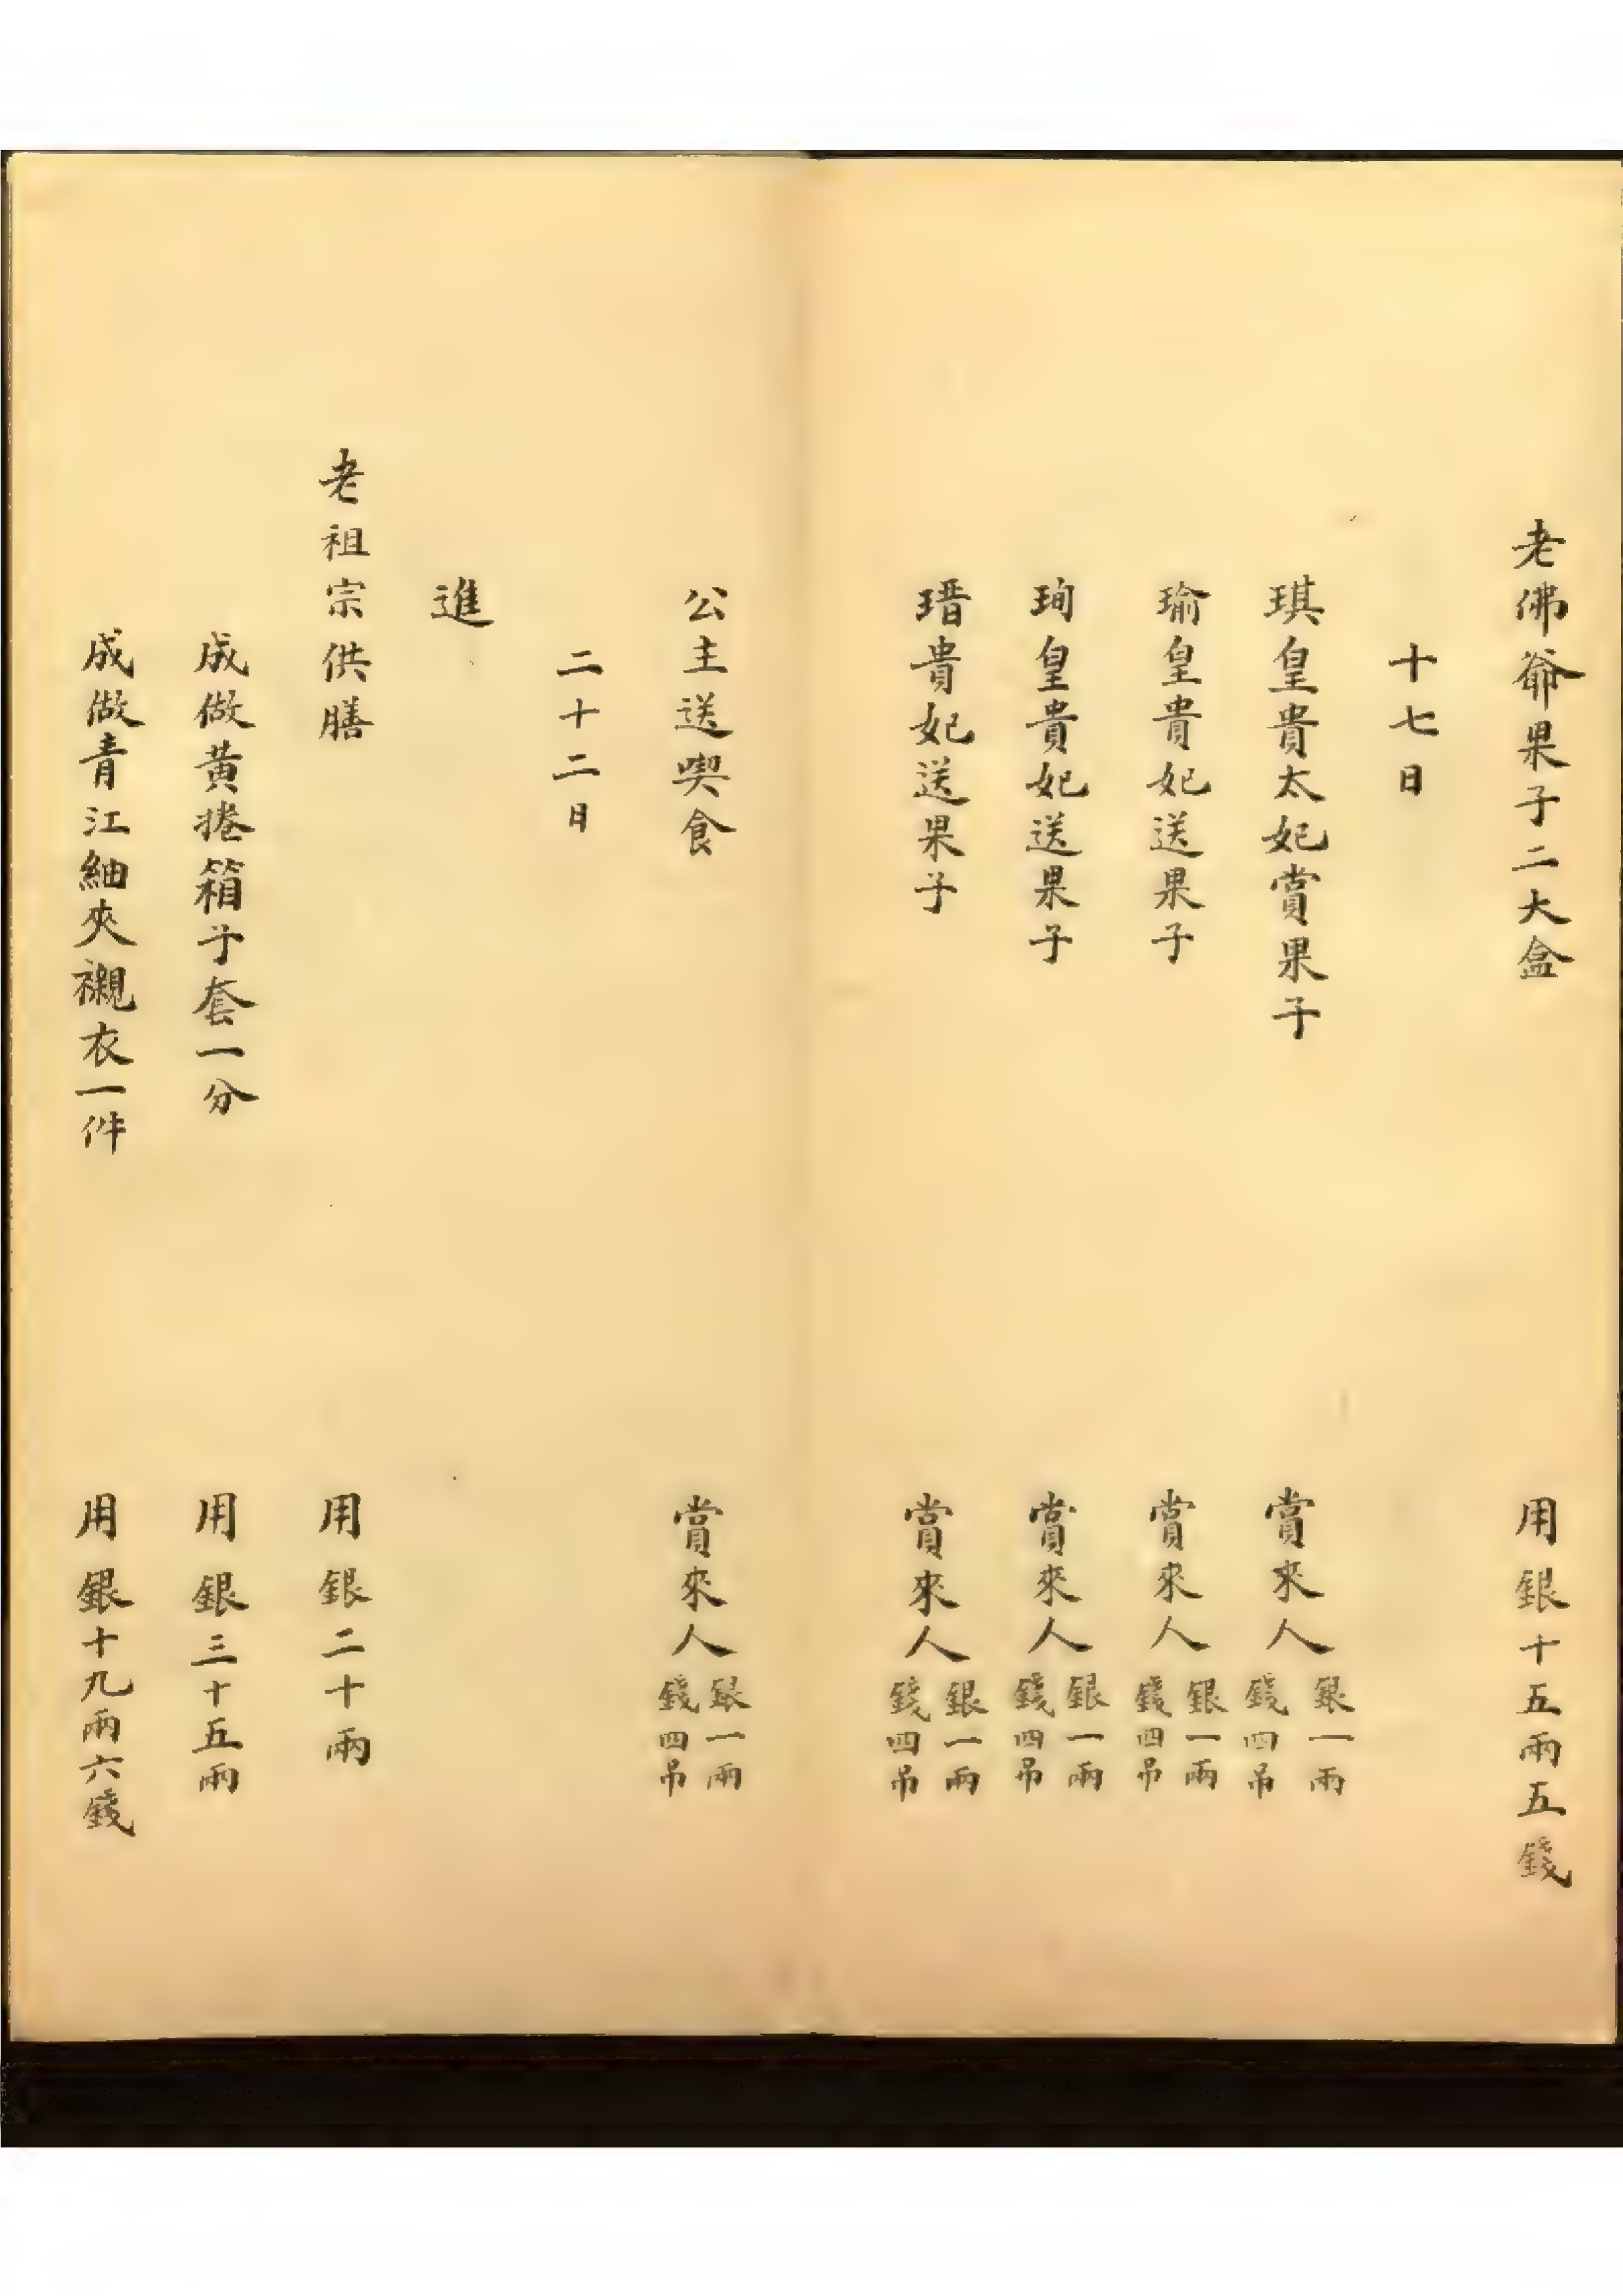 老佛爺果子二大盒 用銀十五兩五錢
十七日
琪皇貴太妃賞果子 賞來人 銀一兩 錢四吊
瑜皇貴妃送果子 賞來人 銀一兩 錢四吊
珣皇貴妃送果子 賞來人 銀一兩 錢四吊
瑨貴妃送果子 賞來人 銀一兩 錢四吊
公主送喫食 賞來人 銀一兩 錢四吊
二十二日
進
老祖宗供膳 用銀二十兩
成做黃捲箱子套一分 用銀三十五兩
成做青江紬夾襯衣一件 用銀十九兩六錢